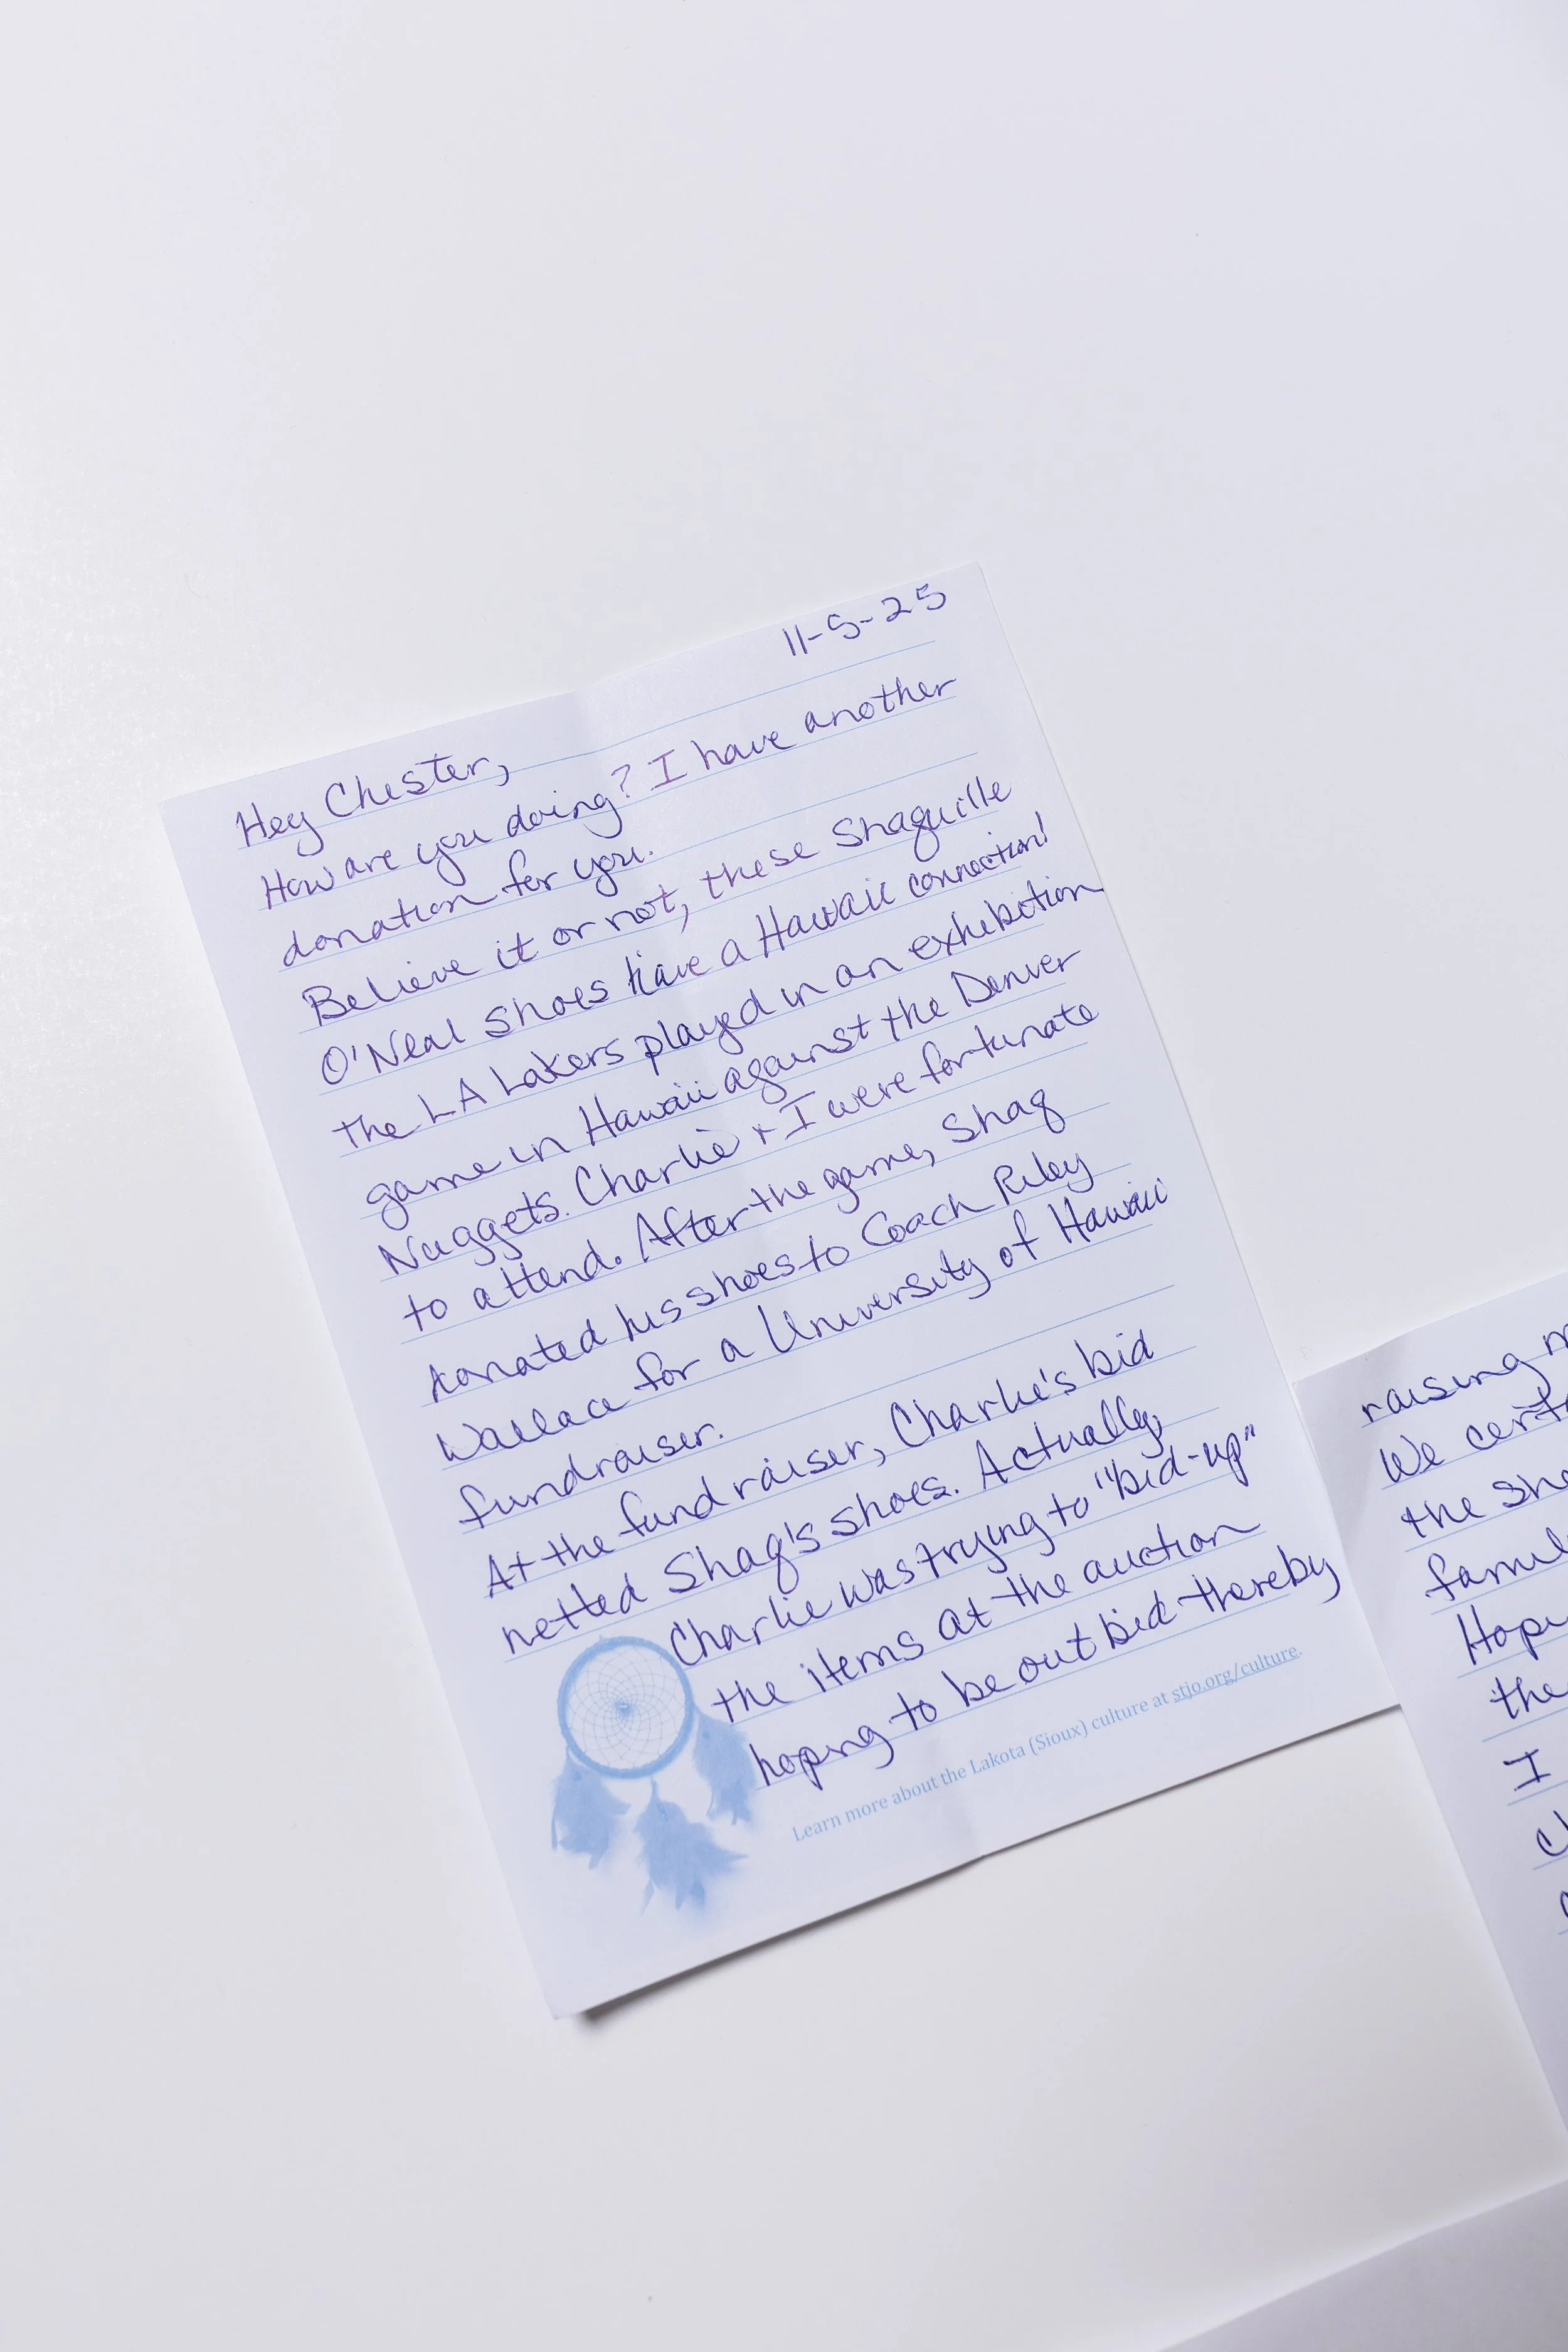 11-5-25
Hey Chester,
How are you doing? I have another
donation for you.
Believe it or not, these Shaquille
O'Neal shoes have a Hawaii connection!
The LA Lakers played in an exhibition
game in Hawaii against the Denver
Nuggets. Charlie + I were fortunate
to attend. After the game, Shaq
donated his shoes to Coach Riley
Wallace for a University of Hawaii
fundraiser.
At the fundraiser, Charlie's bid
netted Shaq's shoes. Actually,
Charlie was trying to "bid-up"
the items at the auction
hoping to be outbid thereby
Learn more about the Lakota (Sioux) culture at stjo.org/culture.
raising
We
the
the
I